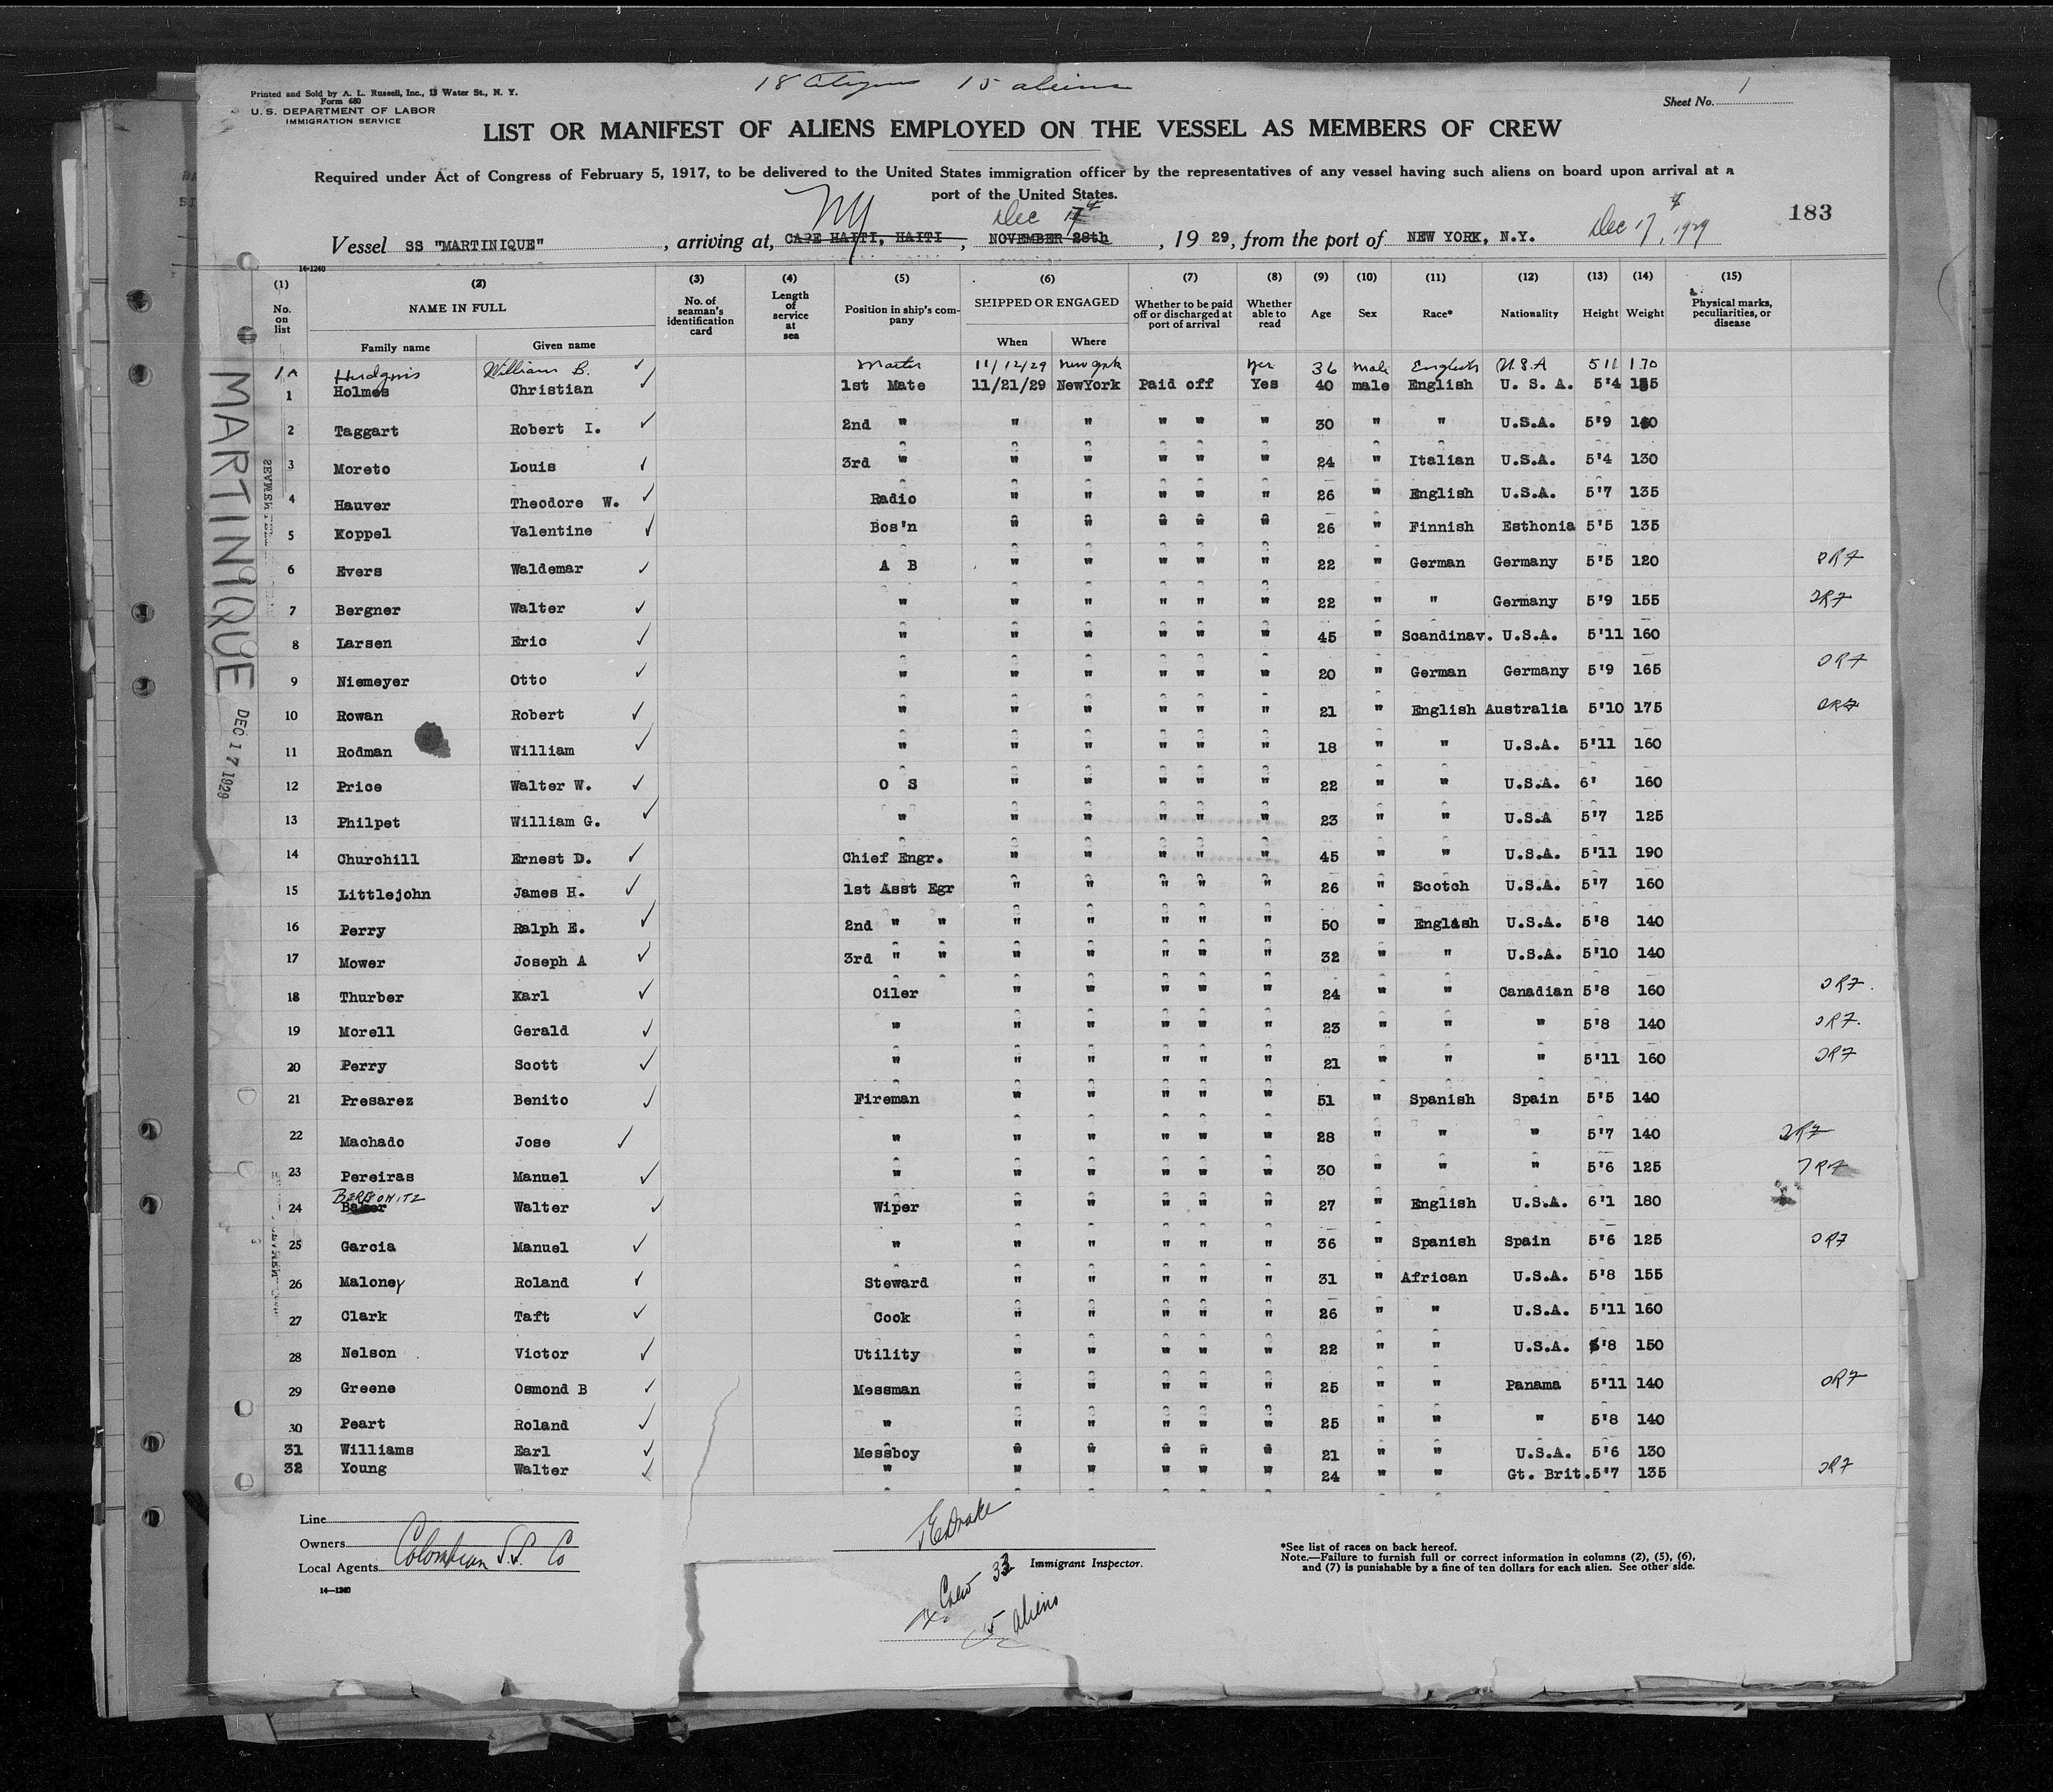 18 Citizens 15 aliens
Printed and Sold by A. L. Russell, Inc., 13 Water St., N. Y.
Form 680
U. S. DEPARTMENT OF LABOR
IMMIGRATION SERVICE
Sheet No. 1
LIST OR MANIFEST OF ALIENS EMPLOYED ON THE VESSEL AS MEMBERS OF CREW
Required under Act of Congress of February 5, 1917, to be delivered to the United States immigration officer by the representatives of any vessel having such aliens on board upon arrival at a
port of the United States.
NY Dec 17th Dec 17th, 1929 183
Vessel SS "MARTINIQUE", arriving at, CAPE HAITI, HAITI, NOVEMBER 28th, 19 29, from the port of NEW YORK, N.Y.
14-1240
(1) (2) (3) (4) (5) (6) (7) (8) (9) (10) (11) (12) (13) (14) (15)
No. on list NAME IN FULL Family name Given name No. of seaman's identification card Length of service at sea Position in ship's company SHIPPED OR ENGAGED When Where Whether to be paid off or discharged at port of arrival Whether able to read Age Sex Race* Nationality Height Weight Physical marks, peculiarities, or disease
1A Hudgins William B. Master 11/12/29 New York Yes 36 male English U.S.A 5 11 170
1 Holmes Christian 1st Mate 11/21/29 NewYork Paid off Yes 40 male English U. S. A. 5'4
2 Taggart Robert I. 2nd " " " " " " 30 " " U.S.A. 5'9
3 Moreto Louis 3rd " " " " " " 24 " Italian U.S.A. 5'4 130
4 Hauver Theodore W. Radio " " " " " 26 " English U.S.A. 5'7 135
5 Koppel Valentine Bos'n " " " " " 26 " Finnish Esthonia 5'5 135
6 Evers Waldemar A B " " " " " 22 " German Germany 5'5 120
7 Bergner Walter " " " " " " 22 " " Germany 5'9 155
8 Larsen Eric " " " " " " 45 " Scandinav. U.S.A. 5'11 160
9 Niemeyer Otto " " " " " " 20 " German Germany 5'9 165
10 Rowan Robert " " " " " " 21 " English Australia 5'10 175
11 Rodman William " " " " " " 18 " " U.S.A. 5'11 160
12 Price Walter W. O S " " " " " 22 " " U.S.A. 6' 160
13 Philpet William G. " " " " " " 23 " " U.S.A 5'7 125
14 Churchill Ernest D. Chief Engr. " " " " " 45 " " U.S.A. 5'11 190
15 Littlejohn James H. 1st Asst Egr " " " " " 26 " Scotch U.S.A. 5'7 160
16 Perry Ralph E. 2nd " " " " " " " 50 " English U.S.A. 5'8 140
17 Mower Joseph A 3rd " " " " " " " 32 " " U.S.A. 5'10 140
18 Thurber Karl Oiler " " " " " 24 " " Canadian 5'8 160
19 Morell Gerald " " " " " " 23 " " " 5'8 140
20 Perry Scott " " " " " " 21 " " " 5'11 160
21 Presarez Benito Fireman " " " " " 51 " Spanish Spain 5'5 140
22 Machado Jose " " " " " " 28 " " " 5'7 140
23 Pereiras Manuel " " " " " " 30 " " " 5'6 125
24 Walter Wiper " " " " " 27 " English U.S.A. 6'1 180
25 Garcia Manuel " " " " " " 36 " Spanish Spain 5'6 125
26 Maloney Roland Steward " " " " " 31 " African U.S.A. 5'8 155
27 Clark Taft Cook " " " " " 26 " " U.S.A. 5'11 160
28 Nelson Victor Utility " " " " " 22 " " U.S.A. 5'8 150
29 Greene Osmond B Messman " " " " " 25 " " Panama 5'11 140
30 Peart Roland " " " " " " 25 " " " 5'8 140
31 Williams Earl Messboy " " " " " 21 " " U.S.A. 5'6 130
32 Young Walter " " " " " " 24 " " Gt. Brit. 5'7 135
MARTINIQUE DEC 17 1929
Line
Owners
Local Agents Colombian S.S. Co
14-1240
Drake
Immigrant Inspector.
Crew 33
15 aliens
*See list of races on back hereof.
Note.—Failure to furnish full or correct information in columns (2), (5), (6),
and (7) is punishable by a fine of ten dollars for each alien. See other side.